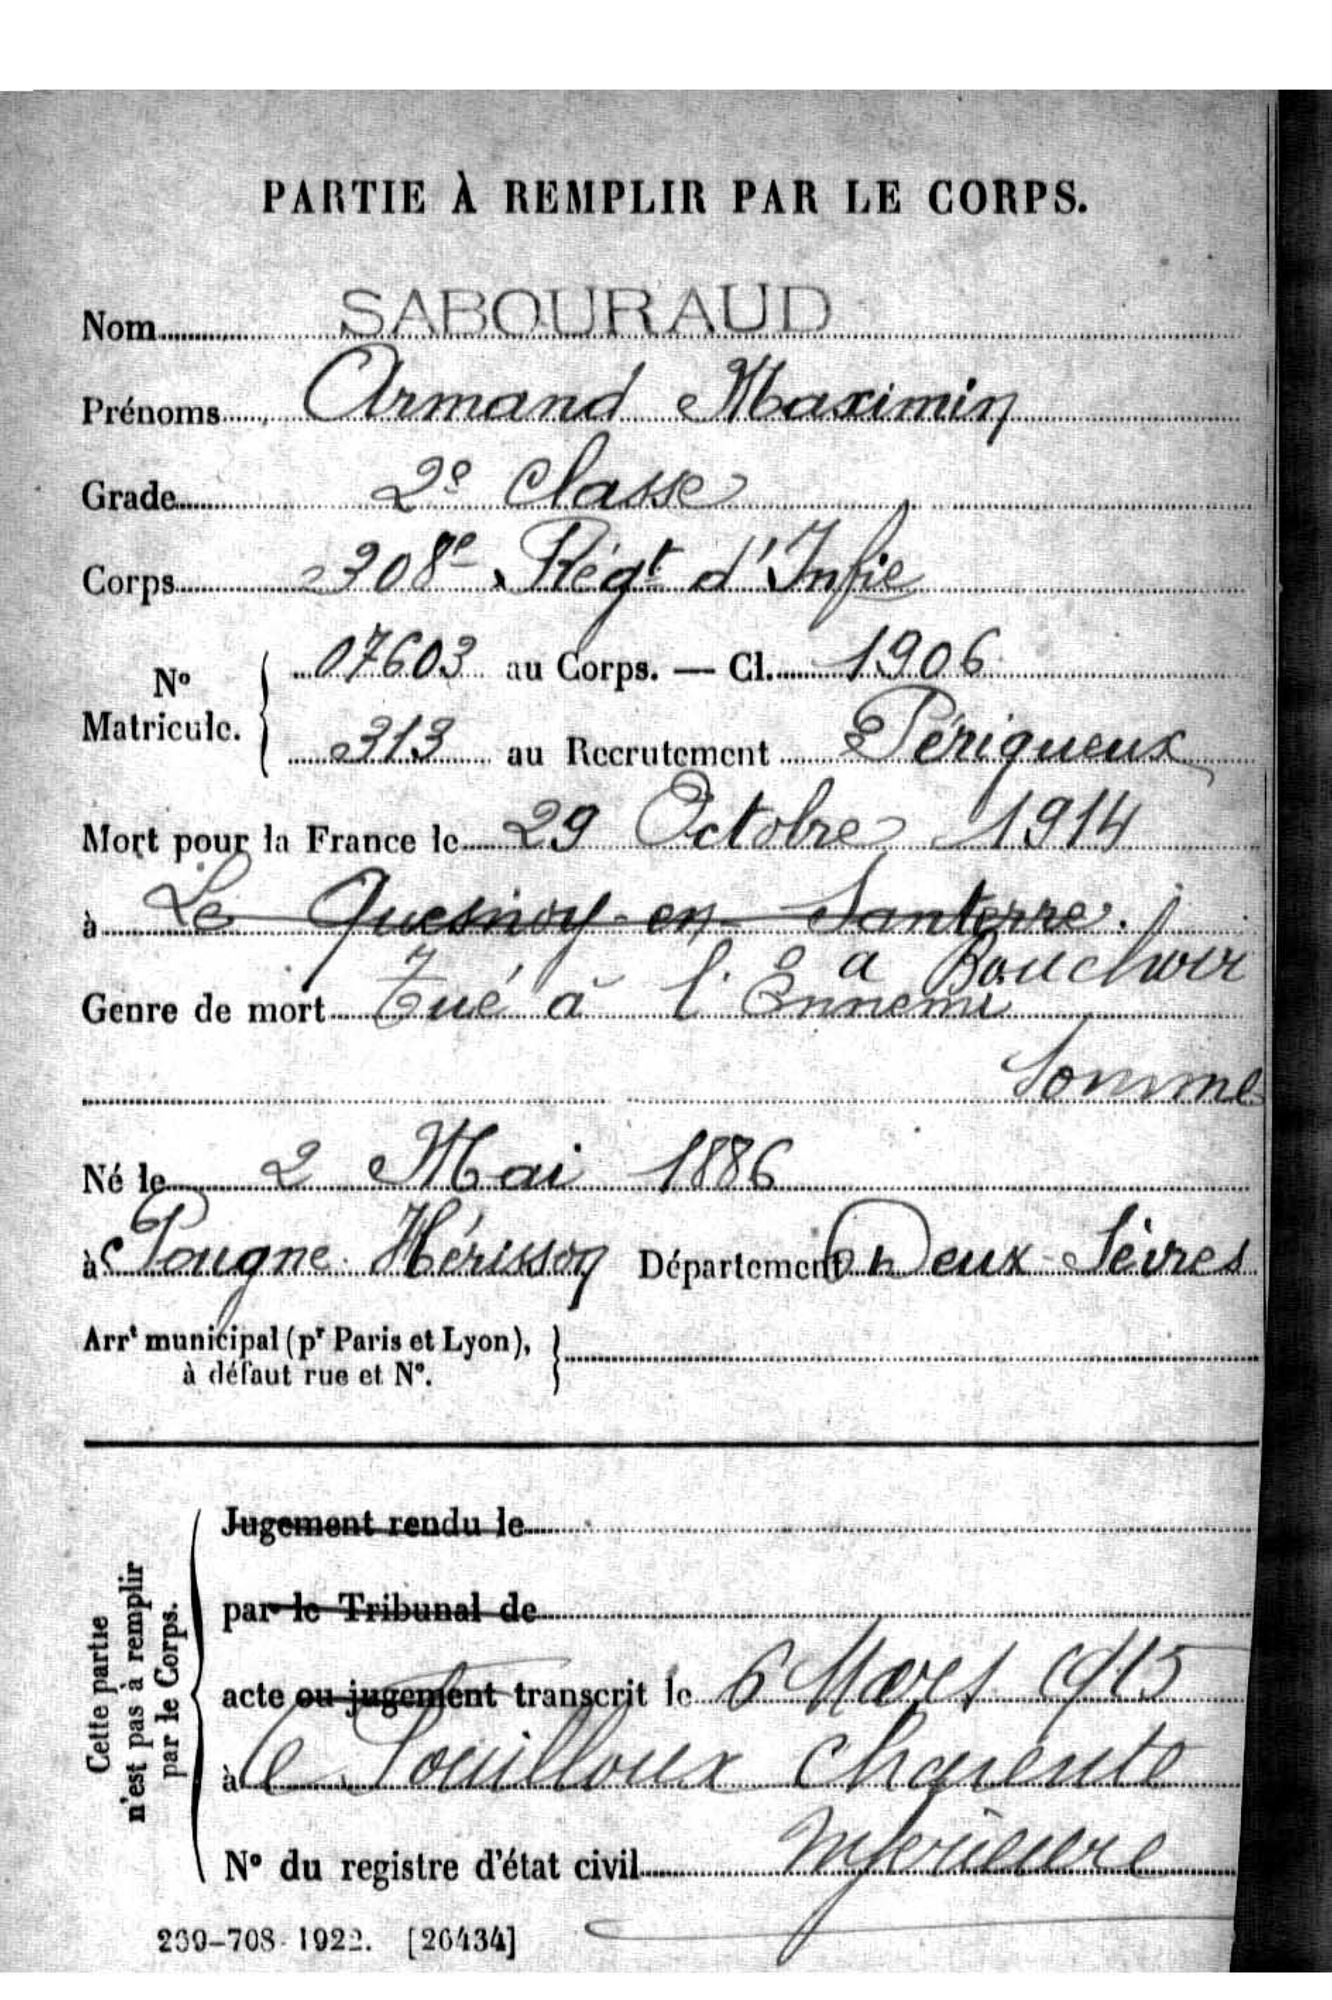 PARTIE À REMPLIR PAR LE CORPS.
Nom SABOURAUD
Prénoms Armand Maximin
Grade 2e Classe
Corps 308e Régt d'Infie
No Matricule. 07603 au Corps. — Cl. 1906
313 au Recrutement Périgueux
Mort pour la France le 29 Octobre 1914
à Le Quesnoy-en-Santerre.
a Bouchoir
Genre de mort Tué à l'Ennemi
Somme
Né le 2 Mai 1886
à Pougne Hérisson Département Deux-Sèvres
Arrt municipal (pr Paris et Lyon),
à défaut rue et No.
Cette partie
n'est pas à remplir
par le Corps.
Jugement rendu le
par le Tribunal de
acte ou jugement transcrit le 6 Mars 1915
à Le Pouilloux Charente
No du registre d'état civil Inférieure
239-708-1922. [26434]